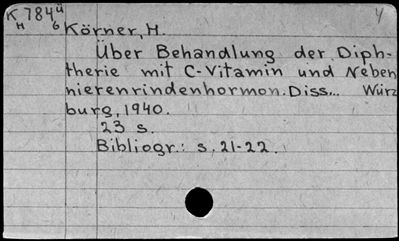 K 784ü
H 6
Körner, H.
Über Behandlung der Diph-
therie mit C-Vitamin und Neben
nierenrindenhormon. Diss... Würz
burg, 1940.
23 s.
Bibliogr.: s. 21-22.